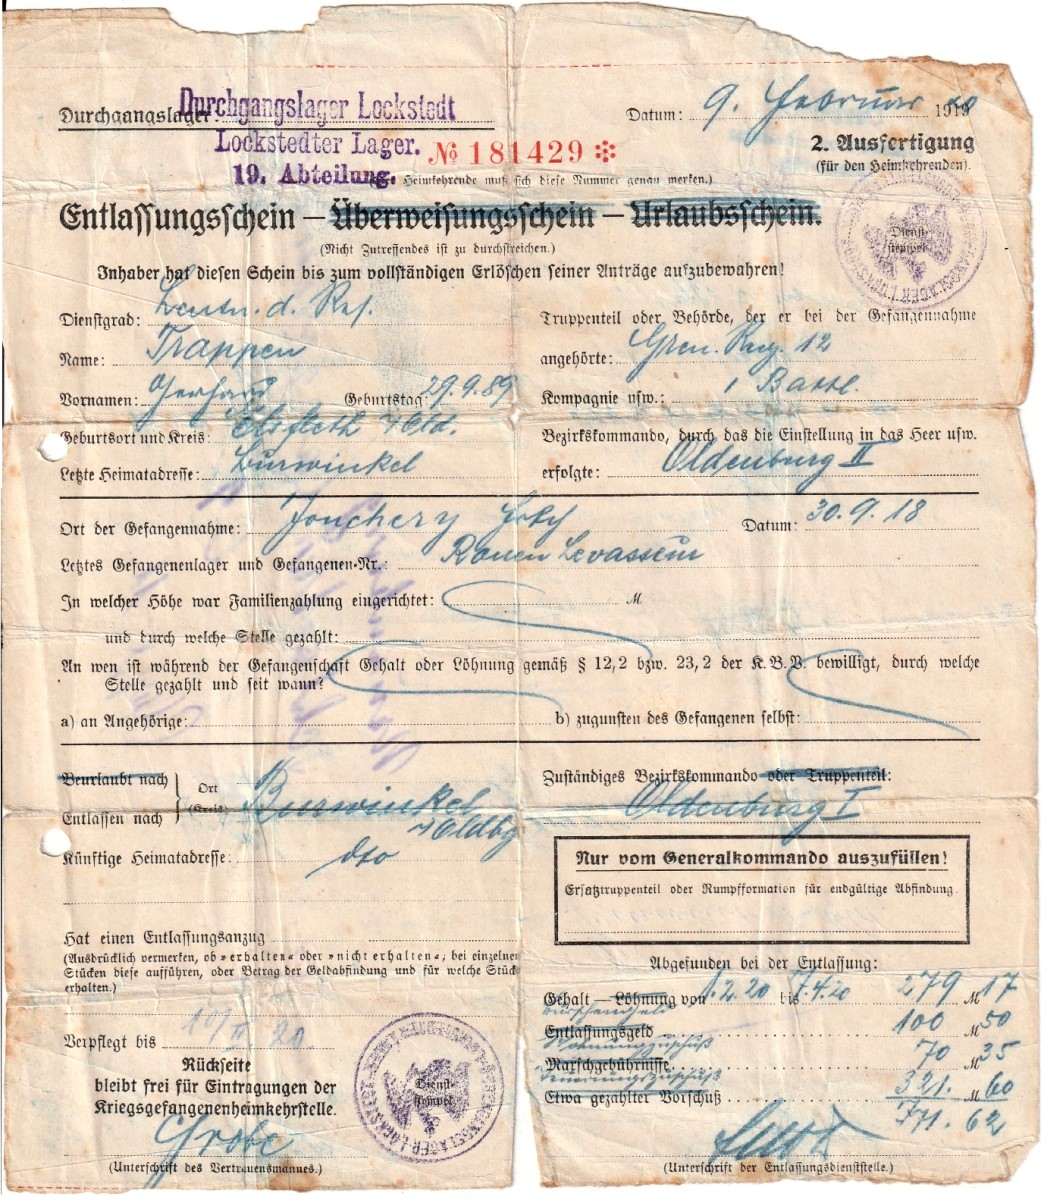 Durchgangslager: Durchgangslager Lockstedt
Lockstedter Lager.
19. Abteilung.
Datum: 9. Februar 1919 20
№ 181429 ✻
2. Ausfertigung
(für den Heimkehrenden).
Heimkehrende muß sich diese Nummer genau merken.)
Entlassungsschein – Überweisungsschein – Urlaubsschein.
(Nicht Zutreffendes ist zu durchstreichen.)
Dienst-
stempel
Inhaber hat diesen Schein bis zum vollständigen Erlöschen seiner Anträge aufzubewahren!
Dienstgrad: Leutn. d. Res.
Truppenteil oder Behörde, der er bei der Gefangennahme
Name: Trappen
angehörte: Gren. Reg. 12
Vornamen: Gerhard Geburtstag: 29.9.89
Kompagnie usw.: 1 Batl.
Geburtsort und Kreis: Elsfleth Old.
Bezirkskommando, durch das die Einstellung in das Heer usw.
Letzte Heimatadresse: Burwinkel
erfolgte: Oldenburg II
Ort der Gefangennahme: Jonchery Datum: 30.9.18
Letztes Gefangenenlager und Gefangenen-Nr.: Rouen Levasseur
In welcher Höhe war Familienzahlung eingerichtet: M
und durch welche Stelle gezahlt:
An wen ist während der Gefangenschaft Gehalt oder Löhnung gemäß § 12,2 bzw. 23,2 der K.B.V. bewilligt, durch welche
Stelle gezahlt und seit wann?
a) an Angehörige: b) zugunsten des Gefangenen selbst:
Beurlaubt nach
Entlassen nach
Ort
(Kreis)
Burwinkel
i Oldbg
Zuständiges Bezirkskommando oder Truppenteil:
Oldenburg I
Künftige Heimatadresse: dto
Nur vom Generalkommando auszufüllen!
Ersatztruppenteil oder Rumpfformation für endgültige Abfindung.
Hat einen Entlassungsanzug
(Ausdrücklich vermerken, ob »erhalten« oder »nicht erhalten«; bei einzelnen
Stücken diese aufführen, oder Betrag der Geldabfindung und für welche Stück
erhalten.)
Abgefunden bei der Entlassung:
Gehalt – Löhnung von 1.2.20 bis 7.4.20 279 M 17
Burschengeld
Entlassungsgeld 100 M 50
Wohnungszuschuß
Marschgebührnisse 70 M 35
Teuerungszuschuß
Etwa gezahlter Vorschuß 321. M 60
771. 62
Verpflegt bis 10/II 20.
Rückseite
bleibt frei für Eintragungen der
Kriegsgefangenenheimkehrstelle.
Dienst-
stempel
Grobe
(Unterschrift des Vertrauensmannes.)
(Unterschrift der Entlassungsdienststelle.)